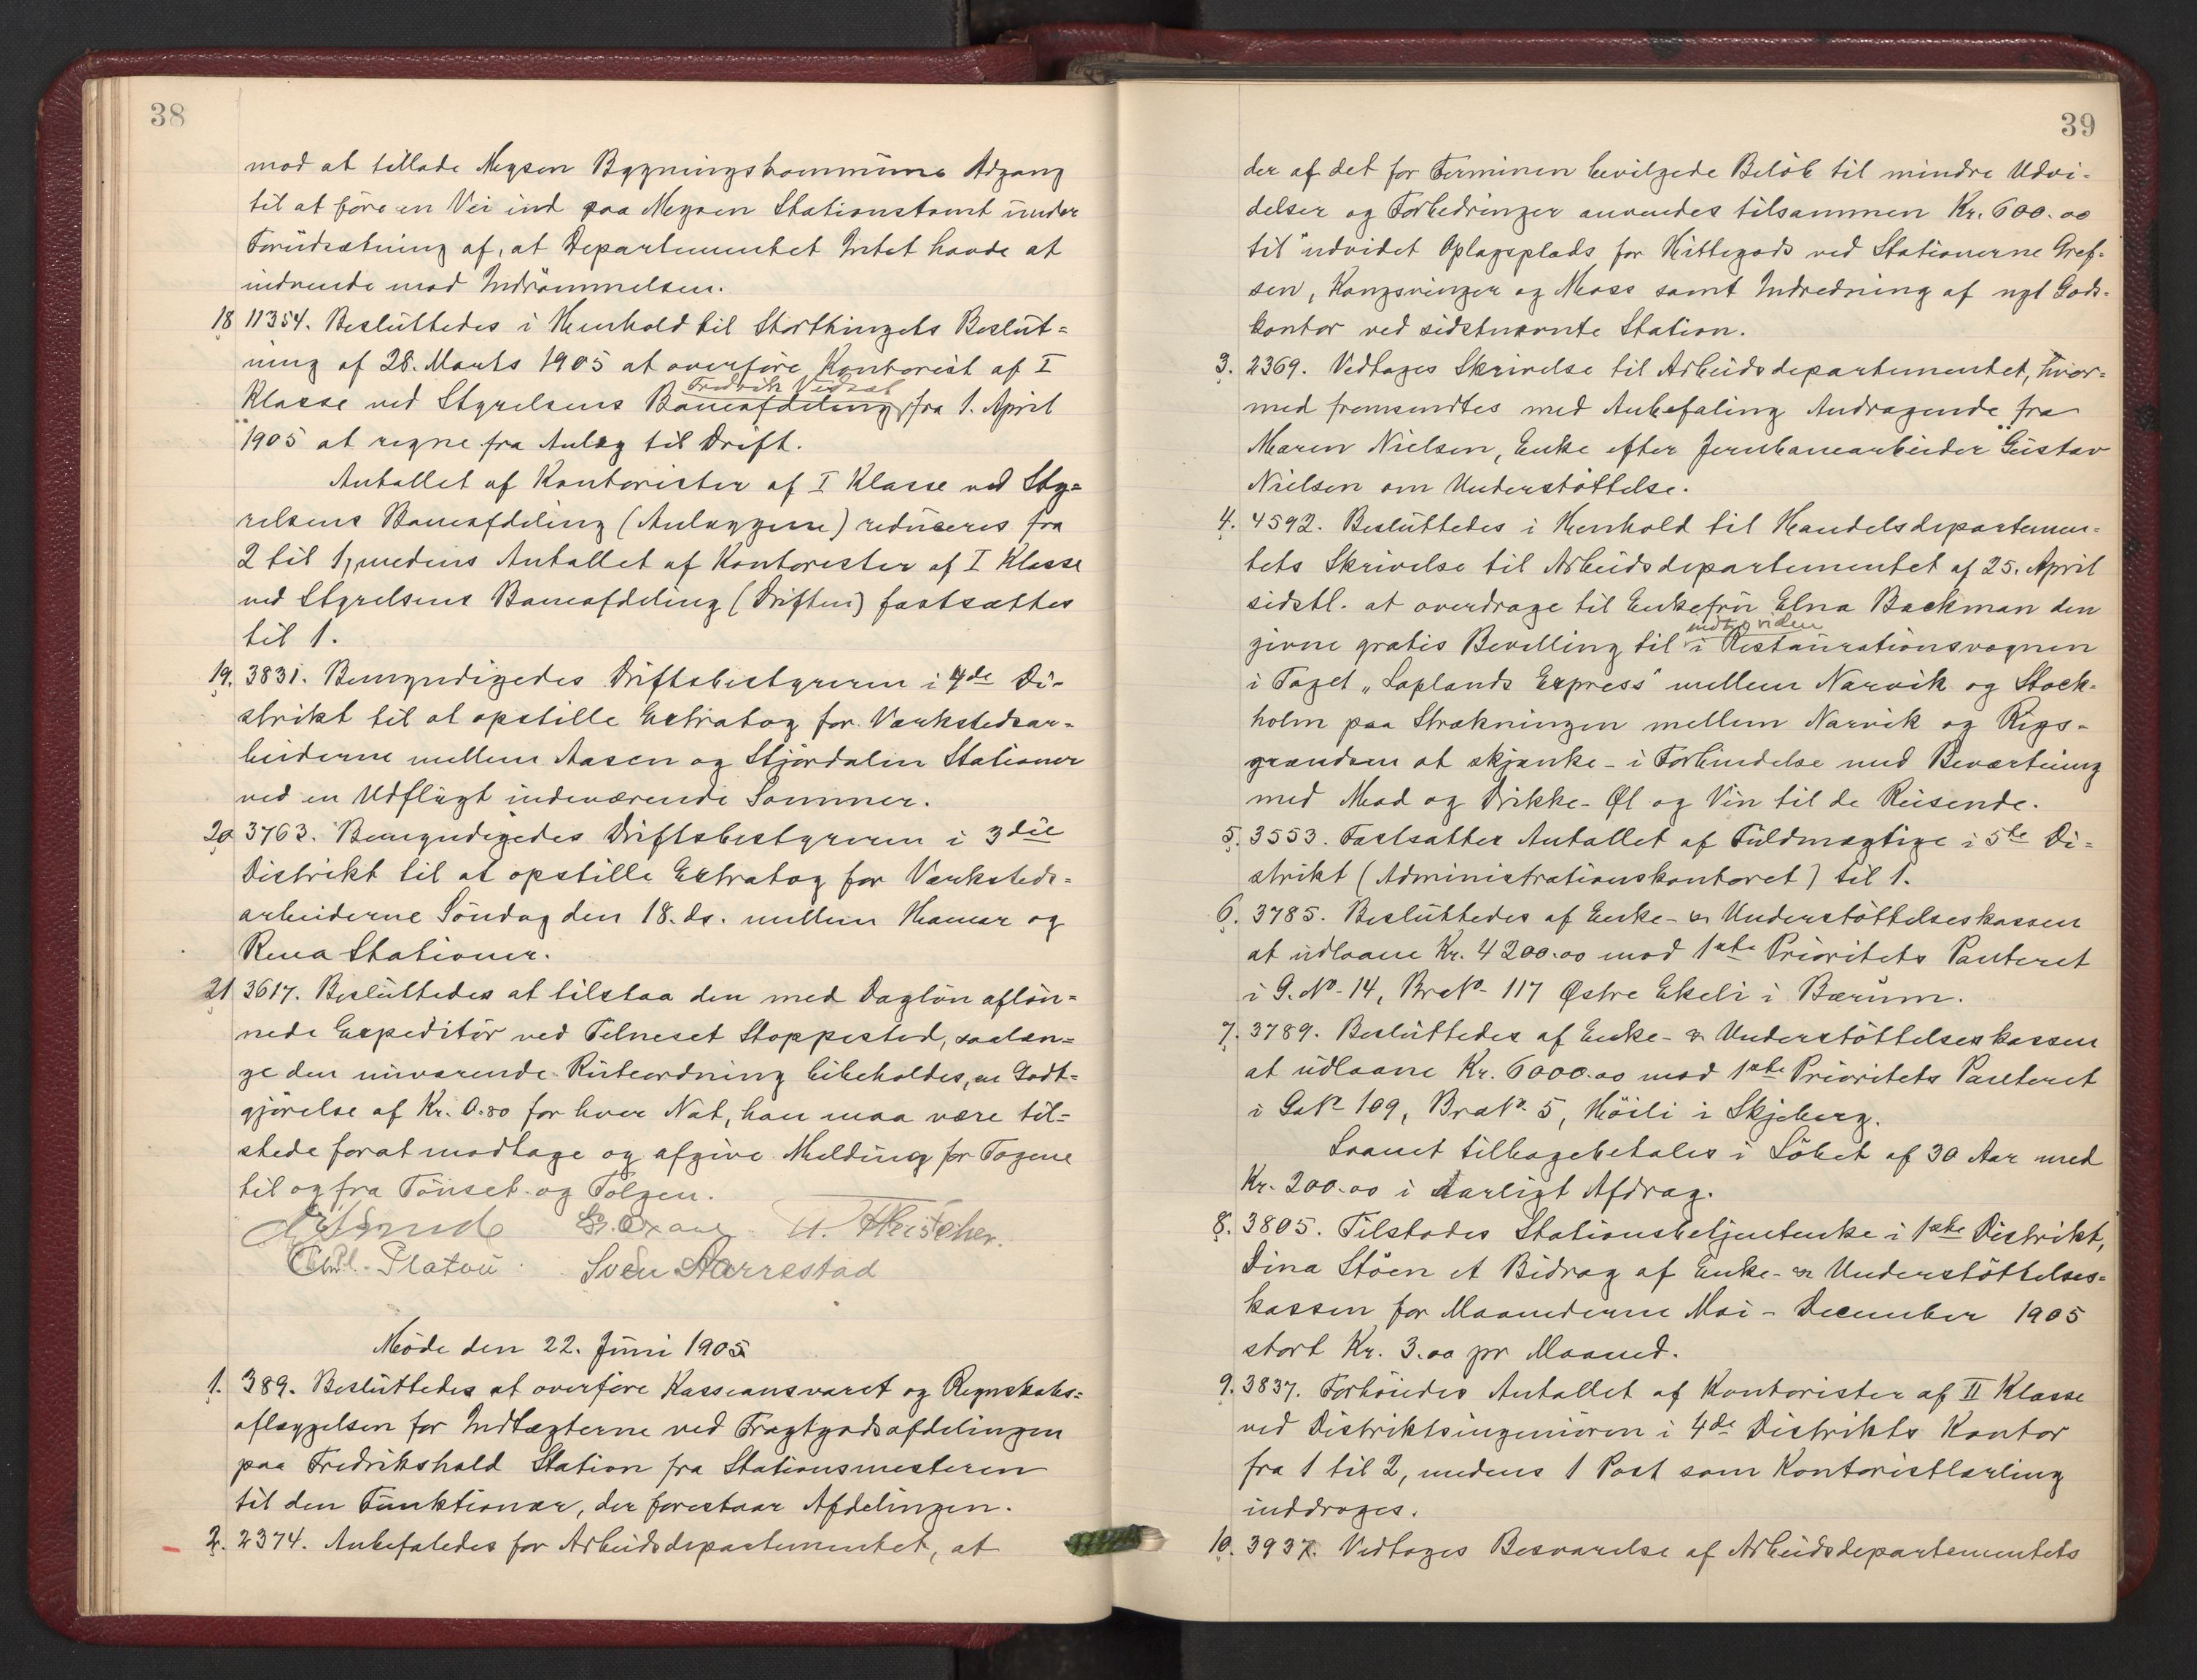 38
mod at tillade Mysen Bygningskommune Adgang
til at føre en Vei ind paa Mysen Stationstomt under
Forudsætning af, at Departementet Intet havde at
indvende mod Indrømmelsen.
18 11354. Besluttedes i Henhold til Storthingets Beslut=
ning af 28. Marts 1905 at overføre Kontorist af I
Klasse ved Styrelsens Baneafdeling, Fredrik fra 1. April
1905 at regne fra Anlæg til Drift.
Antallet af Kontorister af I Klasse ved Sty=
relsens Baneafdeling (Anlæggene) reduceres fra
2 til 1, medens Antallet af Kontorister af I Klasse
ved Styrelsens Baneafdeling (Driften) fastsættes
til 1.
19. 3831. Bemyndigedes Driftsbestyreren i 4de Di-
strikt til at opstille Extratog for Værkstedsar=
beiderne mellem Aasen og Stjørdalen Stationer
ved en Udflugt indeværende Sommer.
20 3763. Bemyndigedes Driftsbestyreren i 3die
Distrikt til at opstille Extratog for Værksteds=
arbeiderne Søndag den 18. ds. mellem Hamar og
Rena Stationer.
21 3617. Besluttedes at tilstaa den med Dagløn afløn=
nede Expeditør ved Telneset Stoppested, saalæn=
ge den nuværende Ruteordning bibeholdes, en Godt=
gjørelse af Kr. 0.80 for hver Nat, han maa være til=
stede forat modtage og afgive Melding for Togene
til og fra Tønset og Tolgen.
Chr. Platou Sven Aarrestad
Møde den 22. Juni 1905
1. 389. Besluttedes at overføre Kasseansvaret og Regnskabs=
aflæggelsen for Indtægterne ved Fragtgodsafdelingen
paa Fredrikshald Station fra Stationsmesteren
til den Funktionær, der forestaar Afdelingen.
2. 2374. Anbefaledes for Arbeidsdepartementet, at
39
der af det for Terminen bevilgede Beløb til mindre Udvi-
delser og Forbedringer anvendes tilsammen Kr. 600.00
til udvidet Oplagsplads for Hittegods ved Stationerne Gref=
sen, Kongsvinger og Moss samt Indredning af nyt Gods=
kontor ved sidstnævnte Station.
3. 2369. Vedtages Skrivelse til Arbeidsdepartementet, hvor=
med fremsendtes med Anbefaling Andragende fra
Maren Nielsen, Enke efter Jernbanearbeider Gustav
Nielsen om Understøttelse.
4. 4592. Besluttedes i Henhold til Handelsdepartemen=
tets Skrivelse til Arbeidsdepartementet af 25. April
sidstl. at overdrage til Enkefru Elna Backman den
indtil videre
givne gratis Bevilling til i Restaurationsvognen
i Toget „Laplands Express" mellem Narvik og Stock=
holm paa Strækningen mellem Narvik og Rigs=
grændsen at skjænke - i Forbindelse med Beværtning
med Mad og Drikke - Øl og Vin til de Reisende.
5. 3553. Fastsatter Antallet af Fuldmægtige i 5te Di=
strikt (Administrationskontoret) til 1.
6. 3785. Besluttedes af Enke- & Understøttelseskassen
at udlaane Kr. 4200.00 mod 1ste Prioritets Panteret
i G. No. 14, Br.No. 117 Østre Ekeli i Bærum.
7. 3789. Besluttedes af Enke- & Understøttelseskassen
at udlaane Kr. 6000.00 mod 1ste Prioritets Panteret
i G.No 109, Br.No. 5, Høili i Skjeberg.
Laanet tilbagebetales i Løbet af 30 Aar med
Kr. 200.00 i aarligt Afdrag.
8. 3805. Tilstodes Stationsbetjentenke i 1ste Distrikt,
Dina Støen et Bidrag af Enke- & Understøttelses=
kassen for Maanederne Mai - December 1905
stort Kr. 3.00 pr Maaned.
9. 3837. Forhøiedes Antallet af Kontorister af II Klasse
ved Distriktsingeniøren i 4de Distrikts Kontor
fra 1 til 2, medens 1 Post som Kontoristlærling
inddroges.
10. 3937. Vedtages Besvarelse af Arbeidsdepartementets